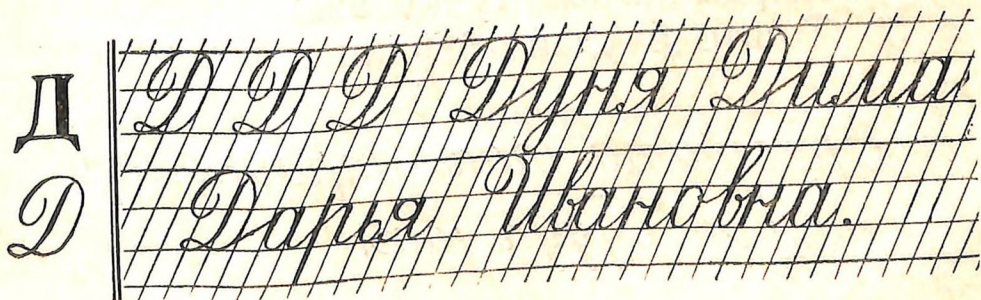 Д
Д
Д Д Д Дуня Дима
Дарья Ивановна.